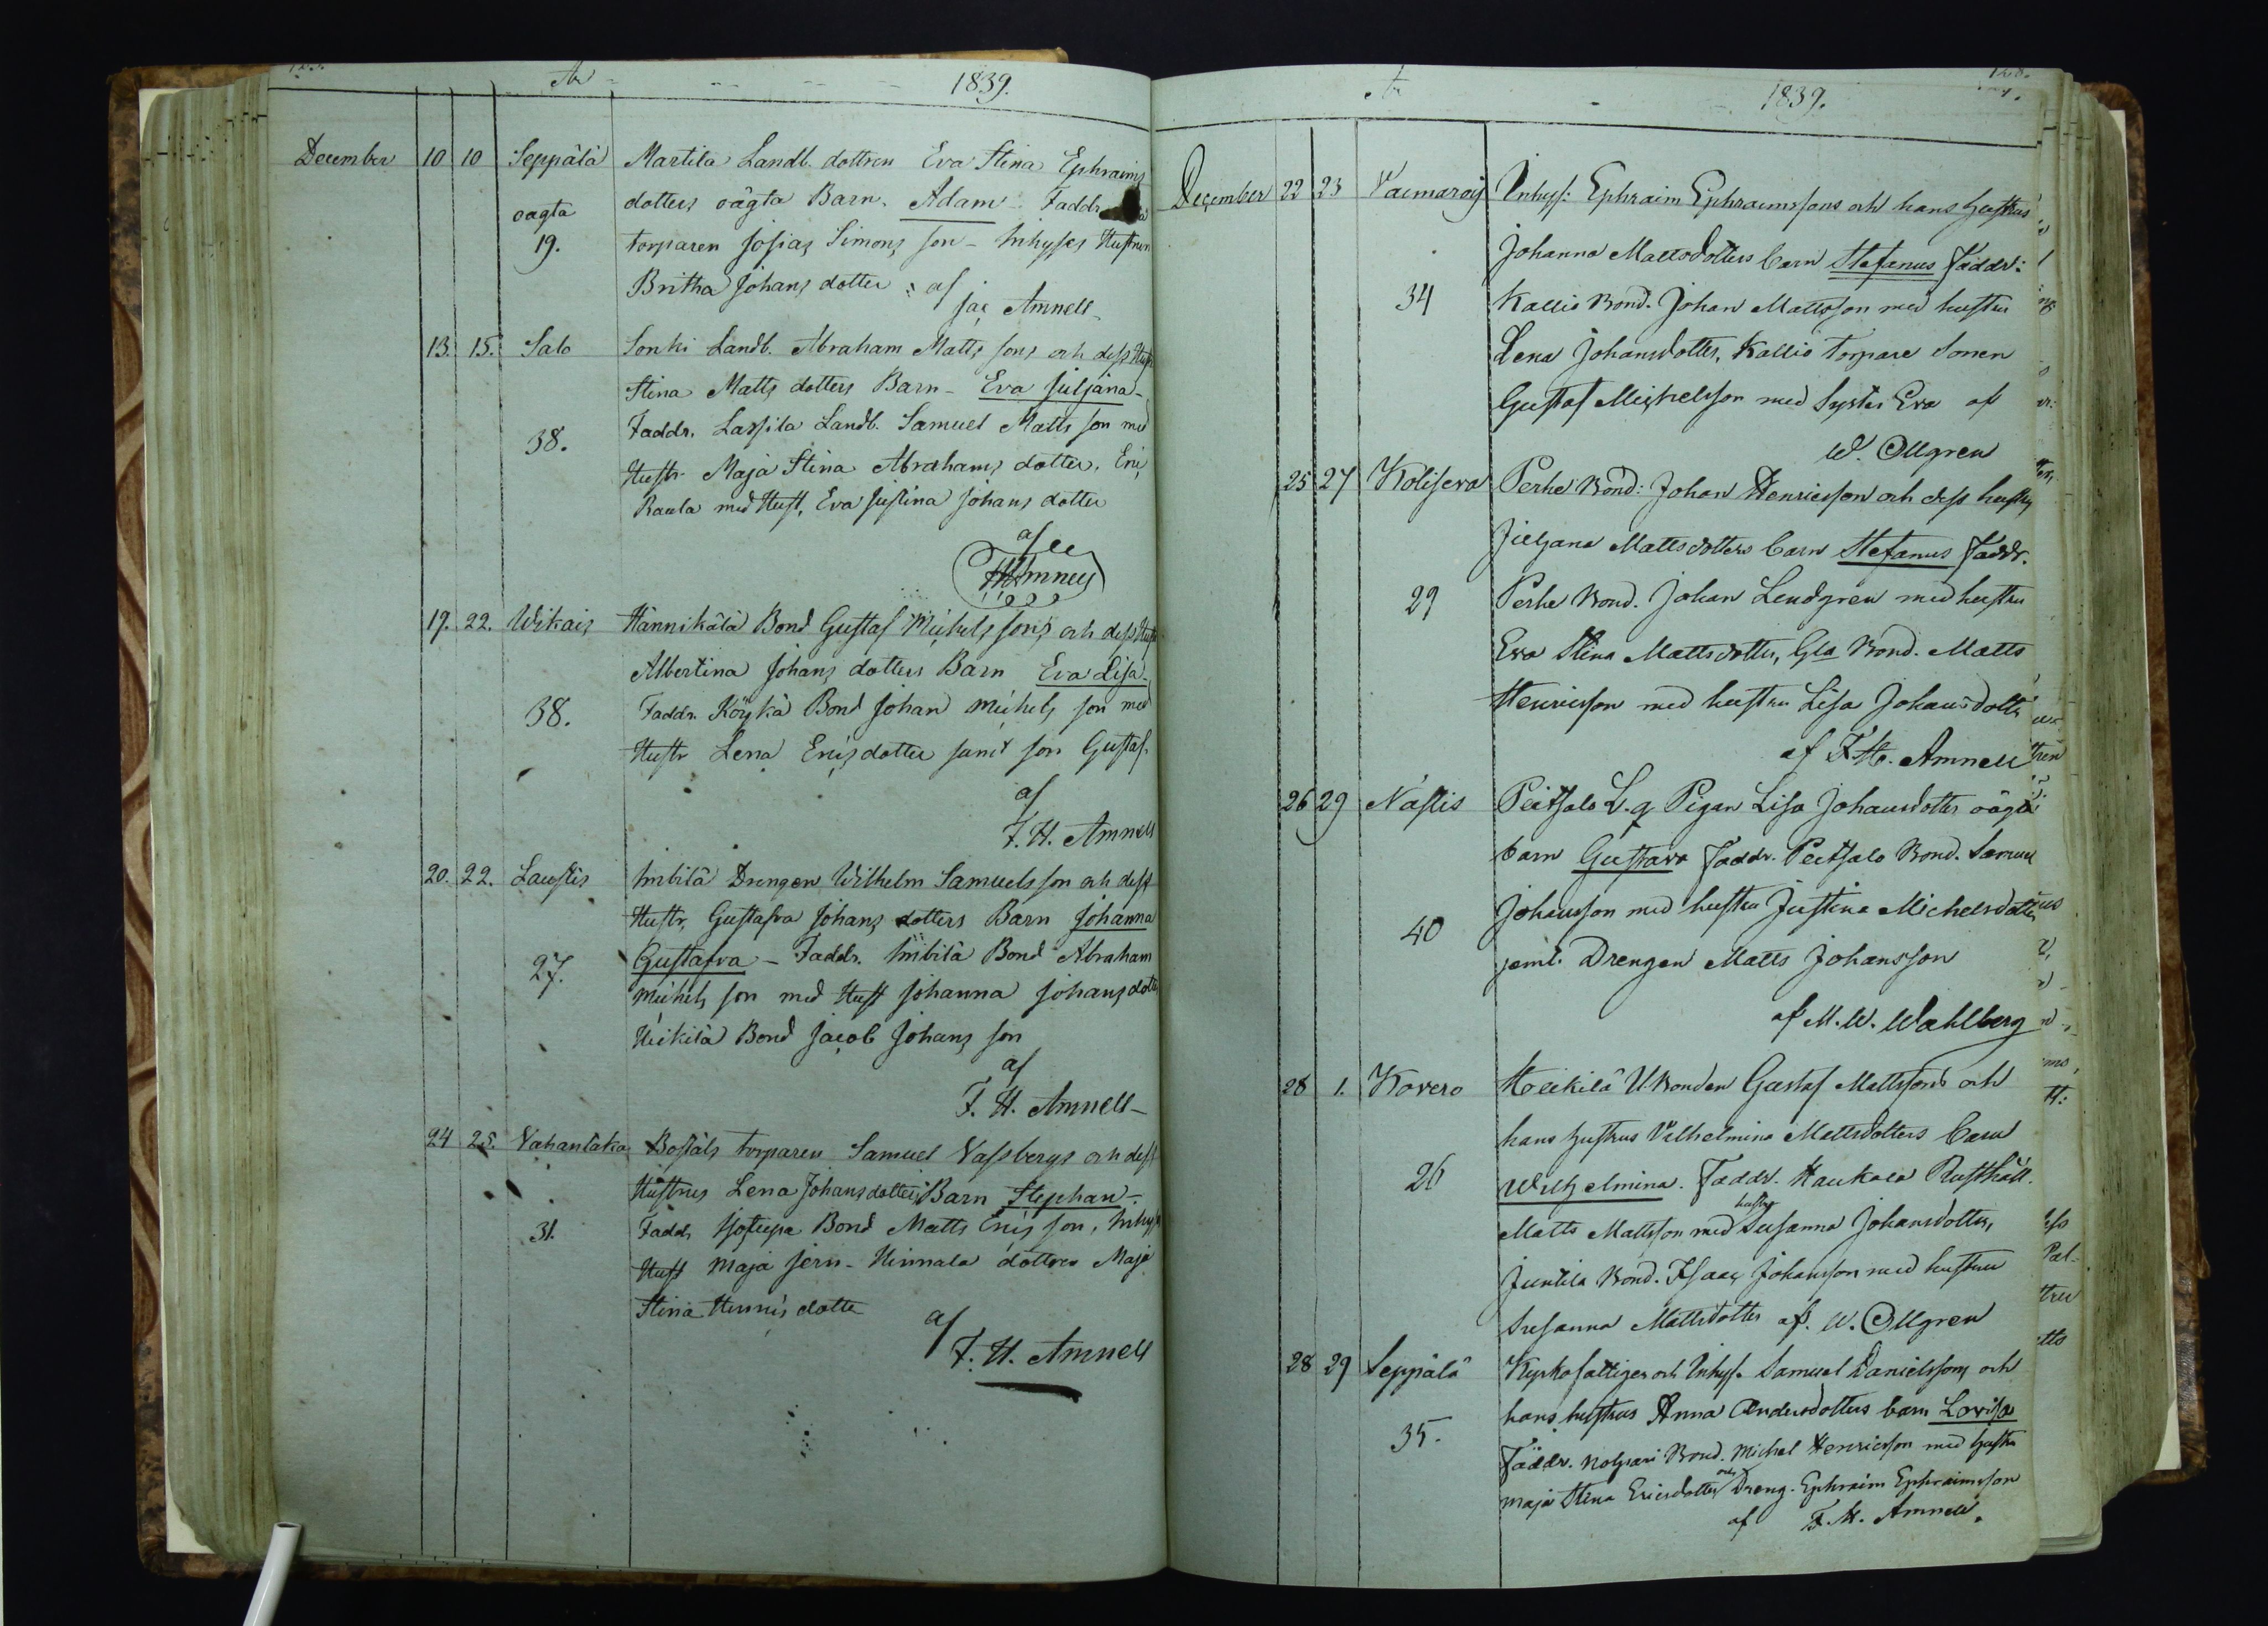 År 1839.
December 10 10 Seppälä Martila Landb. dottren Eva Stina Ephraims
oägta dotters oägta Barn. Adam Faddr
19. torparen Josias Simons son - Inhyses Hustrun
Britha Johans dotter af
Jac Amnell
13. 15. Salo Sonki Landb. Abraham Matts sons och dess Hust
Stina Matts dotters Barn - Eva Juljana -
38. Faddr. Lassila Landb. Samuel Matts son med
Hustr. Maja Stina Abrahams dotter, Eric
Raula med Hust. Eva Justina Johans dotter
af
19. 22. Wikais Hännikälä Bond Gustaf Michels sons och dess Hust
Albertina Johans dotters Barn Eva Lisa -
38. Faddr. Bond Johan Michels son med
Hustr Lena Erics dotter samt son Gustaf.
af
F. H. Amnell
20. 22. Laustis Inbilä Drengen Wilhelm Samuels son och dess
Hustr. Gustafva Johans dotters Barn Johanna
27. Gustafva - Faddr. Inbilä Bond Abraham
Michels son med Hust Johanna Johans dotter
Heikilä Bond Jacob Johans son
af
F. H. Amnell
24 25. Vahantaka Boställs torparen Samuel Vassbergs och dess
Hustrus Lena Johans dotters Barn Stephan -
31. Fadd. Bond Matts Erics son, Inhys
Hust Maja Jern - Hinnala dottren Maja
Stina Henrics dotter
af
F. H. Amnell
År 1839.
December 22 23 Vaimaroij Inhys: Ephraim Ephraimssons och hans hustrus
Johanna Mattsdotters barn Stefanus Faddr:
34 Kallio Bond. Johan Mattsson med hustru
Lena Johansdotter, Kallio Torpare Sonen
Gustaf Michelsson med Syster Eva af
W. Ollgren
25 27 Koliseva Perhe Bond: Johan Henricsson och dess hustrus
Juljana Mattsdotters barn Stefanus Faddr.
29 Perhe Bond. Johan Lendgren med hustru
Eva Stina Mattsdotter, Gla Bond. Matts
Henricsson med hustru Lisa Johansdotter
af F. H. Amnell
26 29 Nästis Peitsalo L. g Pigan Lisa Johansdotter oägta
barn Gustava Faddr. Peitsalo Bond. Samuel
40 Johansson med hustru Justina Michelsdotter
jemt. Drengen Matts Johansson
af M. W. Wahlberg
28 1. Kovero Heikilä UBonden Gustaf Mattssons och
hans hustrus Vilhelmina Mattsdotters barn
26 Wilhelmina. Faddr. Haukala Rusthåll.
Matts Mattsson med hustru Susanna Johansdotter,
Juntila Bond. Isaac Johansson med hustru
Susanna Mattsdotter af. W. Ollgren
28 29 Seppälä Kyrkofattiges och Inhys. Samuel Danielssons och
35. hans hustrus Anna Andersdotters barn Lovisa
Faddr. Bond. Michel Henricsson med hustru
Maja Stina Ericsdotter och Dreng. Ephraim Ephraimsson
af F. H. Amnell.